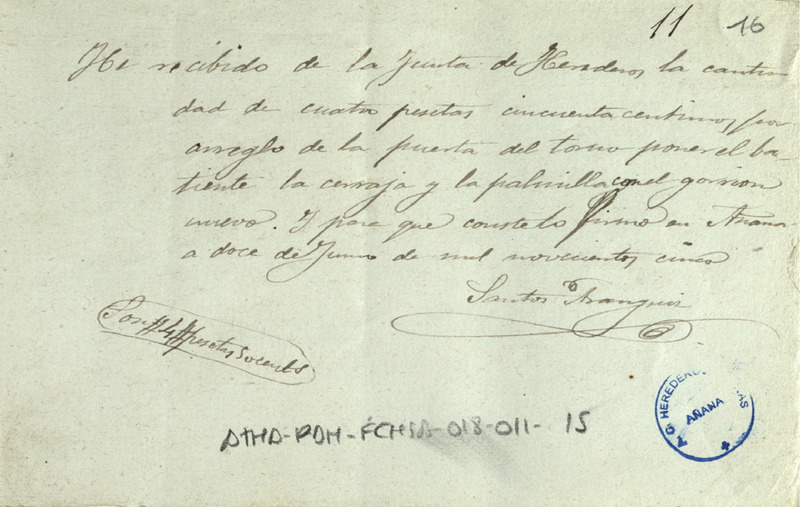 11 16
He recibido de la Junta de Herederos la canti-
dad de cuatro pesetas cincuenta centimos por
arreglo de la puerta del torno poner el ba-
tiente la cerraja y la palmilla con el gorron
nuevo. Y para que conste lo firmo en Añana
a doce de Junio de mil novecientos cinco
Santos Aranguiz
Son #4# pesetas 50 cents
ATHA-PDH-FCHSA-018-011- 15
HEREDEROS
AÑANA